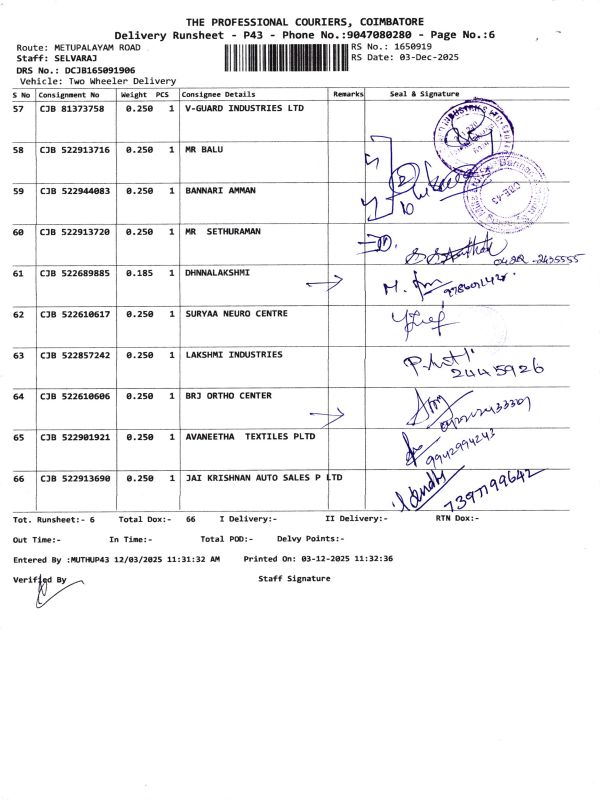 THE PROFESSIONAL COURIERS, COIMBATORE
Delivery Runsheet - P43 - Phone No.:9047080280 - Page No.:6
Route: METUPALAYAM ROAD RS No.: 1650919
Staff: SELVARAJ RS Date: 03-Dec-2025
DRS No.: DCJB165091906
Vehicle: Two Wheeler Delivery
S No Consignment No Weight PCS Consignee Details Remarks Seal & Signature
57 CJB 81373758 0.250 1 V-GUARD INDUSTRIES LTD
58 CJB 522913716 0.250 1 MR BALU
59 CJB 522944083 0.250 1 BANNARI AMMAN
60 CJB 522913720 0.250 1 MR SETHURAMAN
0422-2435555
61 CJB 522689885 0.185 1 DHNNALAKSHMI
62 CJB 522610617 0.250 1 SURYAA NEURO CENTRE
63 CJB 522857242 0.250 1 LAKSHMI INDUSTRIES
24415926
64 CJB 522610606 0.250 1 BRJ ORTHO CENTER
65 CJB 522901921 0.250 1 AVANEETHA TEXTILES PLTD
9942994243
66 CJB 522913690 0.250 1 JAI KRISHNAN AUTO SALES P LTD
7397199642
Tot. Runsheet:- 6 Total Dox:- 66 I Delivery:- II Delivery:- RTN Dox:-
Out Time:- In Time:- Total POD:- Delvy Points:-
Entered By :MUTHUP43 12/03/2025 11:31:32 AM Printed On: 03-12-2025 11:32:36
Verified By Staff Signature